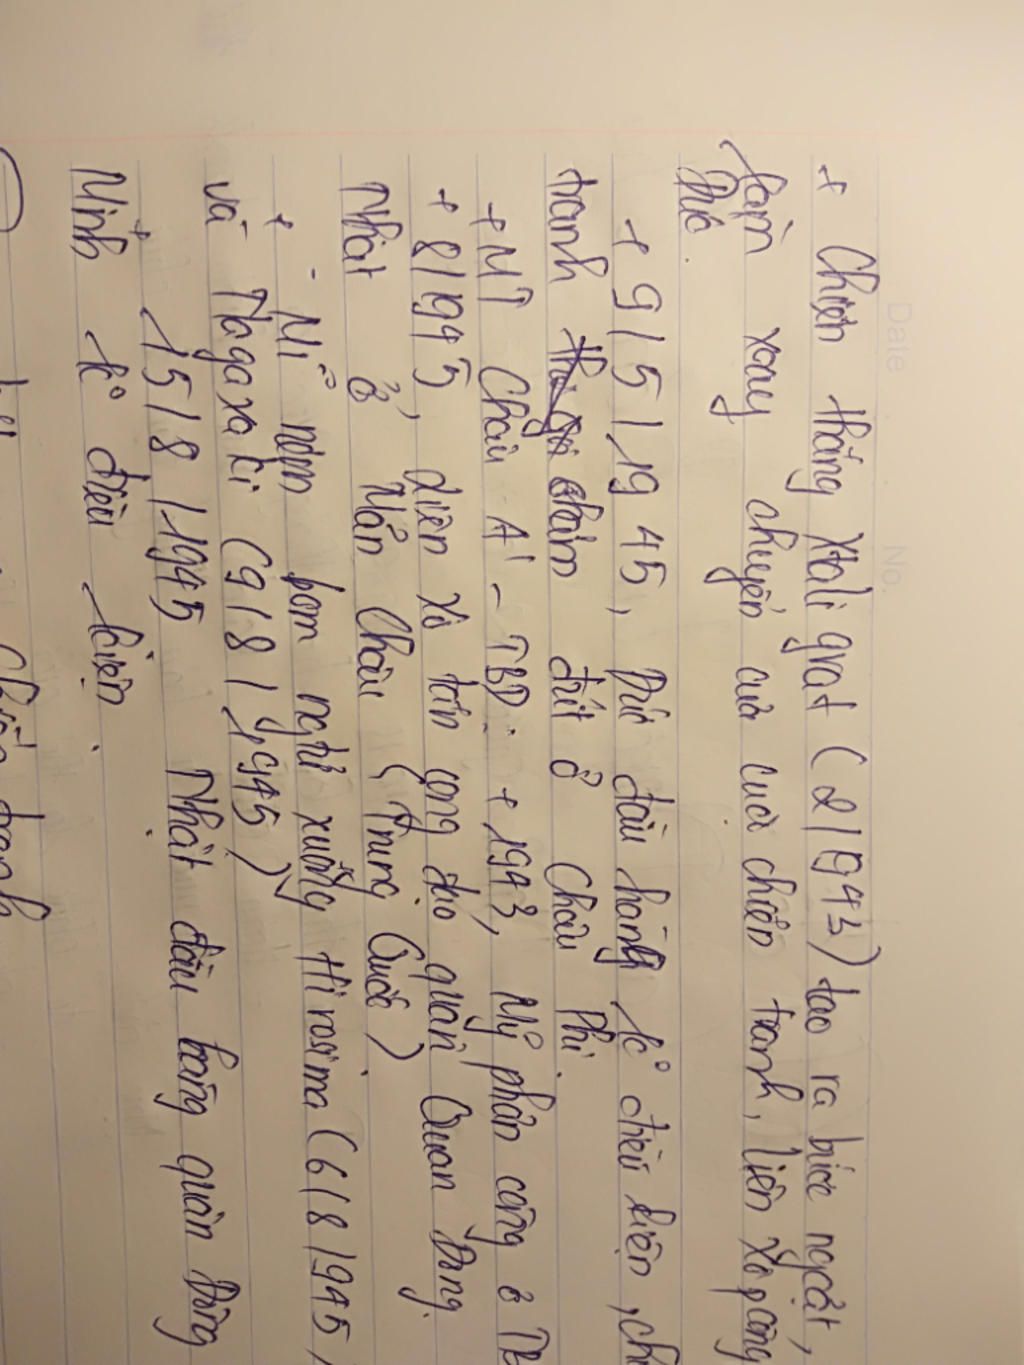 Date
No.
+ Chiến thắng Xtaligrat (2/1943) tạo ra bước ngoặt,
làm xoay chuyển của cuộc chiến tranh, Liên Xô
Đức.
+ 9/5/1945, Đức đầu hàng k° điều kiện,
tranh chấm dứt ở Châu Phi.
+ MT Châu Á - TBD: + 1943, Mỹ phản công ở
+ 8/1945, diên xô tấn công đạo quân Quan Đông.
Nhật ở Mãn Châu (Trung Quốc)
+ - Mĩ ném bom ngtử xuống Hirosima (6/8/1945)
và Nagaxaki (9/8/1945)
+ 15/8/1945 Nhật đầu hàng quân Đồng
Minh k° điều kiện.